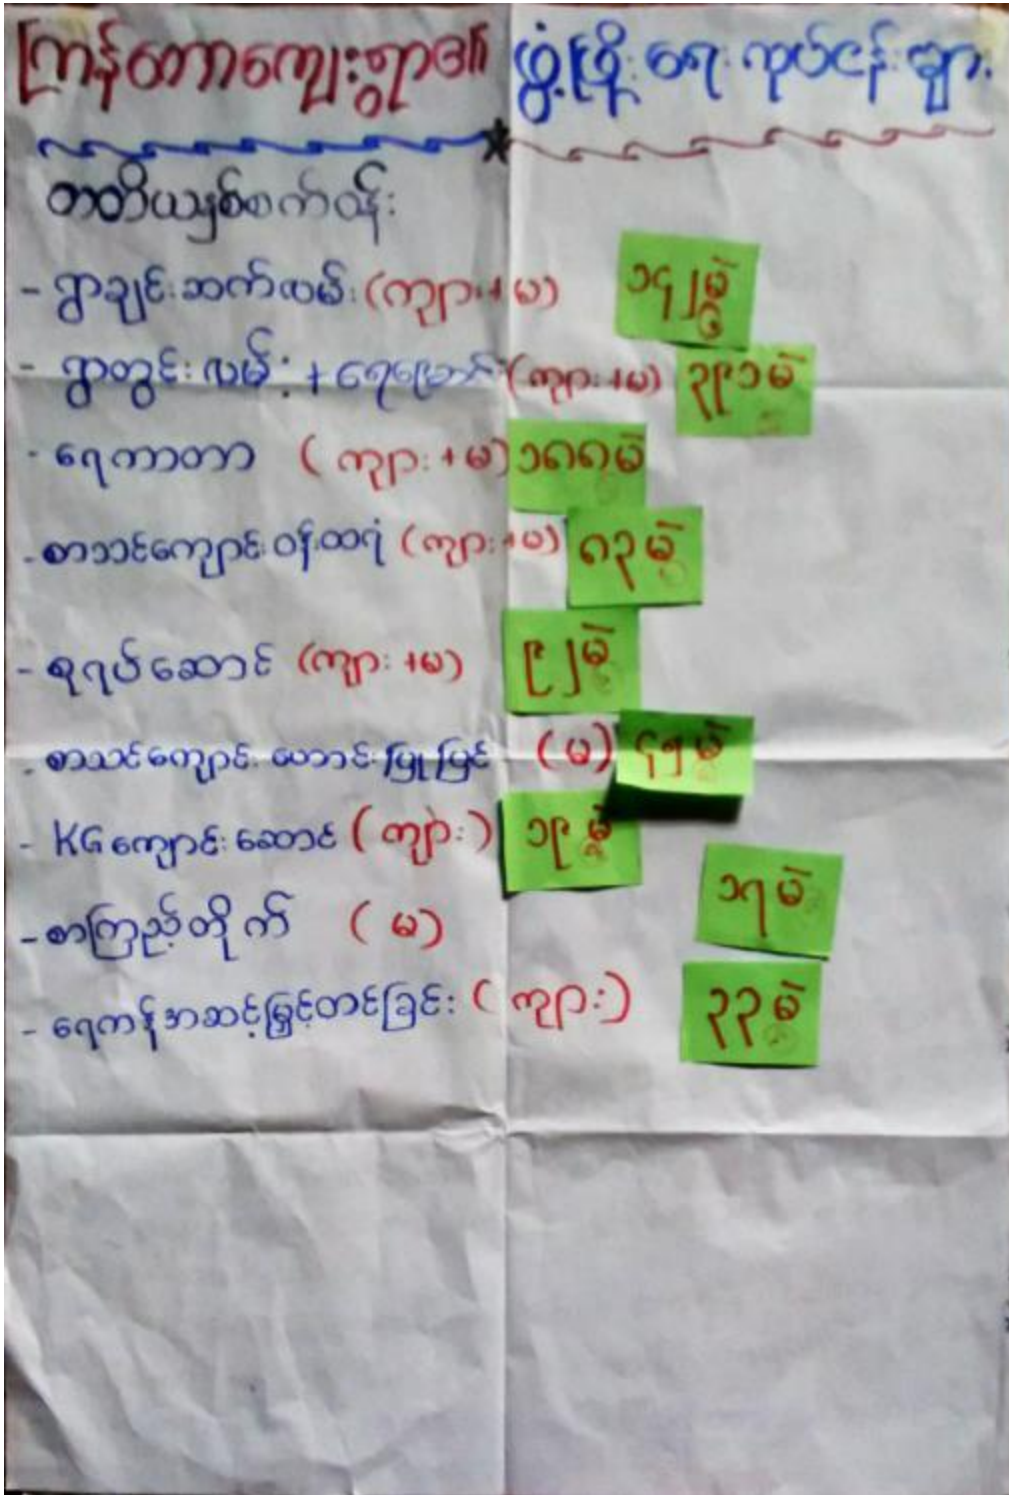 ကြန်တာကျေးရွာ၏ ဖွံ့ဖြိုးရေးလုပ်ငန်းများ
တတိယနှစ်စက်ဝန်း
- ရွာချင်းဆက်လမ်း (ကျား+မ) ၁၄၂မဲ
- ရွာတွင်းလမ်း + ရေမြောင်း (ကျား+မ) ၃၉၁မဲ
- ရေကာတာ (ကျား+မ) ၁၈၈မဲ
- စာသင်ကျောင်းဝန်းထရံ (ကျား+မ) ၈၃မဲ
- စုရပ်ဆောင် (ကျား+မ) ၉၂မဲ
- စာသင်ကျောင်းဟောင်းပြုပြင် (မ) ၄၅မဲ
- KG ကျောင်းဆောင် (ကျား) ၁၉မဲ
- စာကြည့်တိုက် (မ) ၁၇မဲ
- ရေကန်အဆင့်မြှင့်တင်ခြင်း (ကျား) ၃၃မဲ